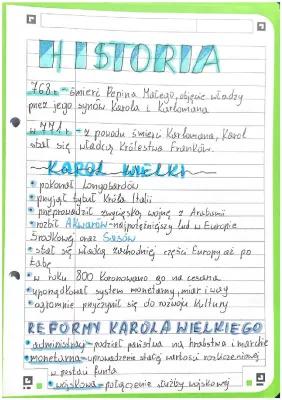 HISTORIA
768r. - śmierć Pepina Małego, objęcie władzy
przez jego synów Karola i Karlomana
w 771 r. - z powodu śmierci Karlomana, Karol
stał się władcą Królestwa Franków.
~KAROL WIELKI~
• pokonał Longobardów
• przyjął tytuł Króla Italii
• przeprowadził zwycięską wojnę z Arabami
• rozbił Akwarów - najpotężniejszy lud w Europie
Środkowej oraz Sasów
• stał się władcą zachodniej części Europy aż po
Łabę
• w roku 800 koronowano go na cesarza
• uporządkował system monetarny, miar i wag
• ogromnie przyczynił się do rozwoju kultury
REFORMY KAROLA WIELKIEGO
• administracji - podział państwa na hrabstwa i marchie
• monetarna - wprowadzenie stałej wartości rozliczeniowej
w postaci funta
• wojskowa - połączenie służby wojskowej